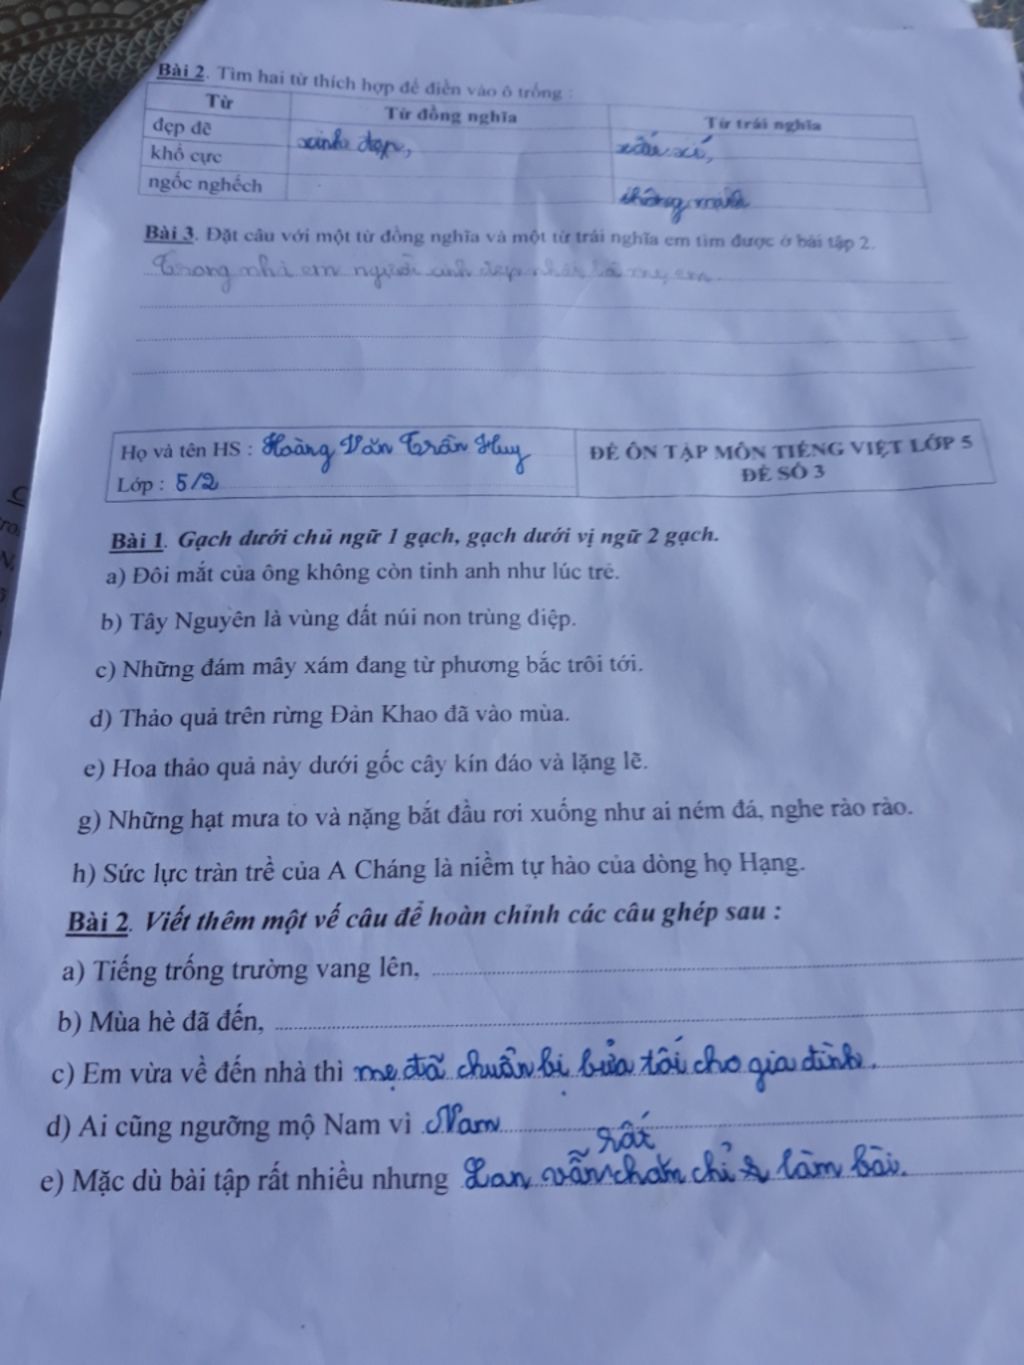 Bài 2. Tìm hai từ thích hợp để điền vào ô trống :
Từ Từ đồng nghĩa Từ trái nghĩa
đẹp đẽ xinh đẹp, xấu xí,
khổ cực
ngốc nghếch thông minh
Bài 3. Đặt câu với một từ đồng nghĩa và một từ trái nghĩa em tìm được ở bài tập 2.
Trong nhà em người xinh đẹp nhất là mẹ em.
Họ và tên HS : Hoàng Văn Trần Huy
Lớp : 5/2
ĐỀ ÔN TẬP MÔN TIẾNG VIỆT LỚP 5
ĐỀ SỐ 3
Bài 1. Gạch dưới chủ ngữ 1 gạch, gạch dưới vị ngữ 2 gạch.
a) Đôi mắt của ông không còn tinh anh như lúc trẻ.
b) Tây Nguyên là vùng đất núi non trùng điệp.
c) Những đám mây xám đang từ phương bắc trôi tới.
d) Thảo quả trên rừng Đản Khao đã vào mùa.
e) Hoa thảo quả nảy dưới gốc cây kín đáo và lặng lẽ.
g) Những hạt mưa to và nặng bắt đầu rơi xuống như ai ném đá, nghe rào rào.
h) Sức lực tràn trề của A Cháng là niềm tự hào của dòng họ Hạng.
Bài 2. Viết thêm một vế câu để hoàn chỉnh các câu ghép sau :
a) Tiếng trống trường vang lên,
b) Mùa hè đã đến,
c) Em vừa về đến nhà thì mẹ đã chuẩn bị bửa tối cho gia đình.
d) Ai cũng ngưỡng mộ Nam vì Nam
e) Mặc dù bài tập rất nhiều nhưng Lan vẫn rất chăm chỉ làm bài.